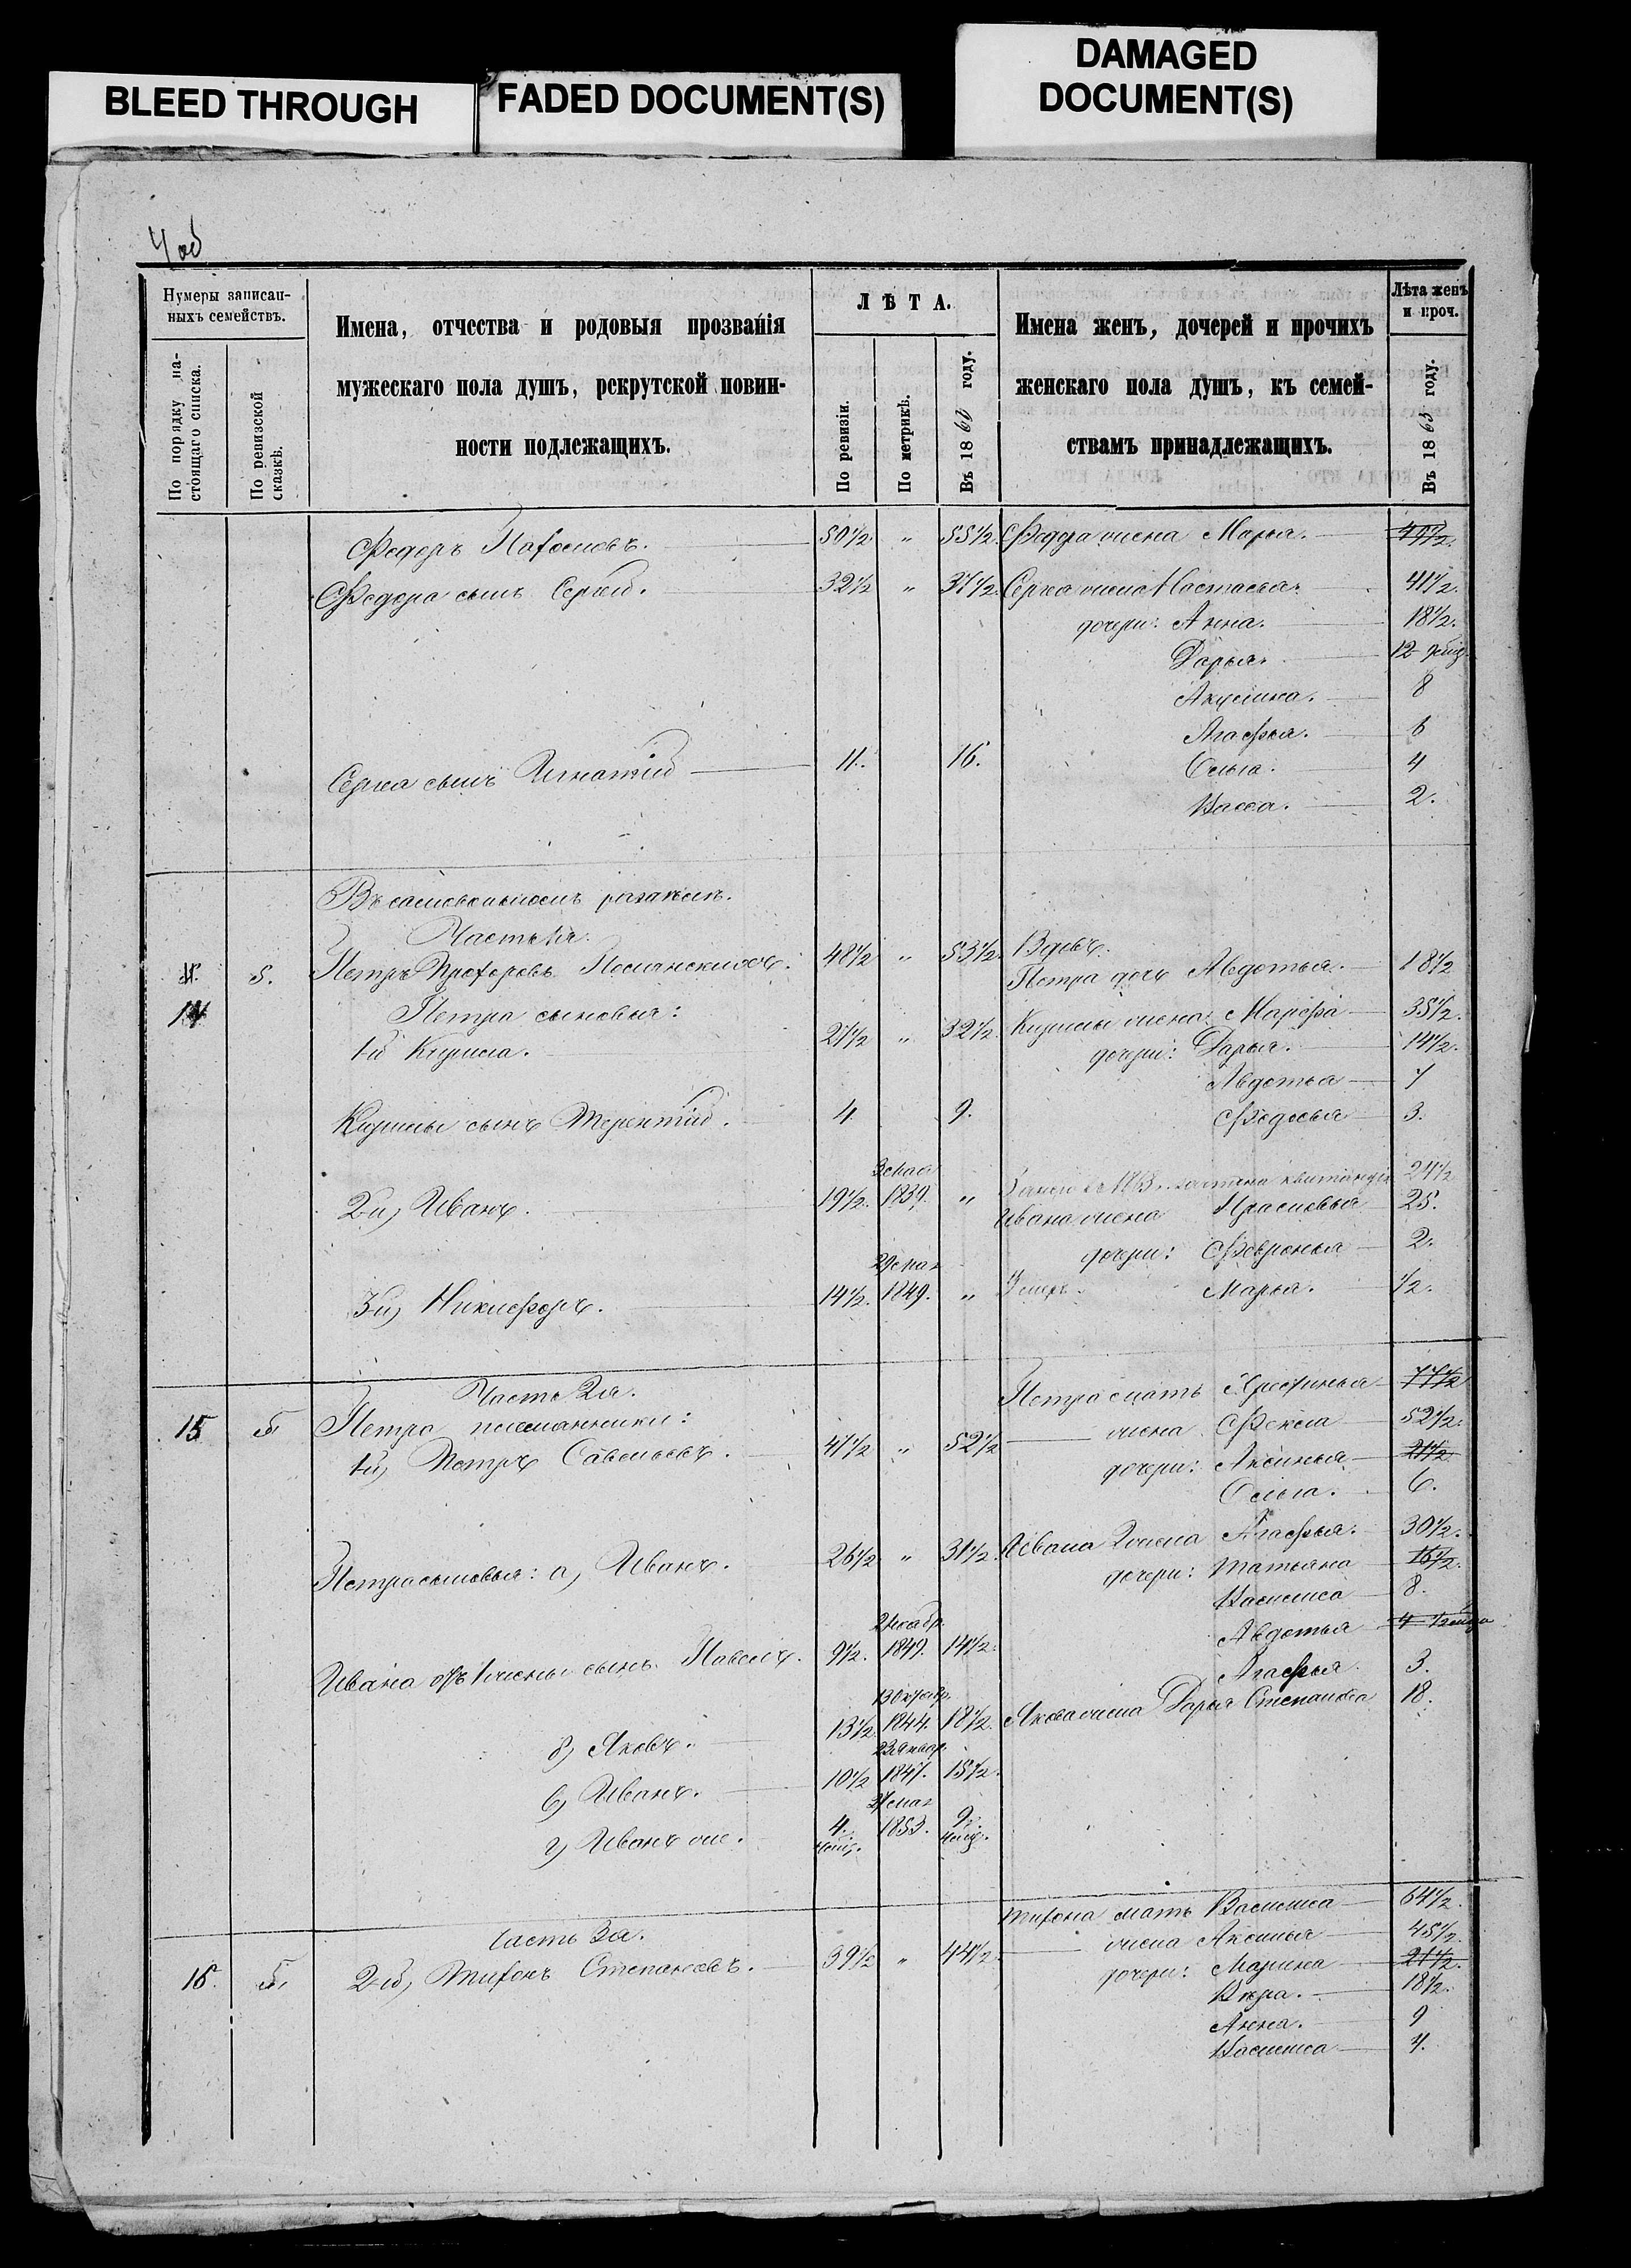 BLEED THROUGH
FADED DOCUMENT(S)
DAMAGED
DOCUMENT(S)
4 об
Нумеры записан-
ныхъ семействъ.
По порядку на-
стоящаго списка.
По ревизской
сказкѣ.
Имена, отчества и родовыя прозванія
мужескаго пола душъ, рекрутской повин-
ности подлежащихъ.
ЛѢТА.
По ревизіи.
По метрикѣ.
Въ 1863 году.
Имена женъ, дочерей и прочихъ
женскаго пола душъ, къ семей-
ствамъ принадлежащихъ.
Лѣта женъ
и проч.
Въ 1863 году.
Федоръ 50½ " 55½. Федора жена Марья. 49½.
Федора сынъ Сергѣй. 32½ " 37½. Сергѣя жена Настасья. 41½.
дочери: Анна. 18½.
Дарья. 12
Акулина. 8
Агафья. 6
Ольга. 4
Сергѣя сынъ Игнатій 11. 16.
Васса. 2.
Въ самовольномъ раздѣлѣ.
Часть 1я.
5. Петръ Прохоровъ 48½ " 53½. Вдовъ.
Петра дочь Авдотья. 18½
14 Петра сыновья:
1й Кирила. 27½ " 32½. Кирилы жена Марфа 35½.
дочери: Дарья. 14½.
Авдотья 7
Кирилы сынъ Терентій. 4 9. Федосья 3.
2й, Иванъ. 19½. 1839. " 1863. квитанція 24½
Ивана жена Прасковья 25.
дочери: Февронья 2.
3й, Никифоръ. 14½. 1849. " Умеръ. Марья. ½.
Часть 2я.
Петра мать 77½
15 5 Петра племянники:
жена Фекла 52½.
1й, Петръ Савельевъ. 47½ " 52½
дочери: Аксинья 21½
Ольга. 6.
Петра сыновья: а, Иванъ. 26½ " 31½. Ивана 2 жена Агафья. 30½.
дочери: Татьяна 16½.
Василиса 8.
Авдотья 4
Ивана отъ 1 жены сынъ Павелъ. 9½. 1849. 14½.
Агафья. 3.
б, Яковъ. 13½. 13 октяб. 1844. 18½. Якова жена Дарья Степанова 18.
в, Иванъ. 10½ 23 январ. 1847. 15½.
г, Иванъ же. 4. 1853. 9.
Тихона мать Василиса 64½.
Часть 3я.
жена Аксинья 45½.
16. 5. 2й, Тихонъ Степановъ. 39½ " 44½.
дочери: Марина 21½.
Вѣра. 18½.
Анна. 9
Василиса 4.